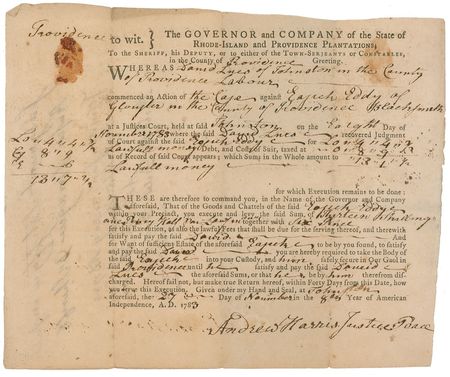 Providence to wit. } The GOVERNOR and COMPANY of the State of
RHODE-ISLAND and PROVIDENCE PLANTATIONS,
To the SHERIFF, his DEPUTY, or to either of the TOWN-SERJEANTS or CONSTABLES,
in the County of Providence Greeting.
WHEREAS David of Johnston in the County
of Providence Labour
commenced an Action of the Case against Eddy of
in the County of Providence
at a Justices Court, held at said Johnston on the Eight Day of
November 1783 where the said David recovered Judgment
of Court against the said Eddy for
Lawfull money and Cost of Suit, taxed at
us of Record of said Court appears; which Sums in the Whole amount to
Lawfull money
for which Execution remains to be done:
THESE are therefore to command you, in the Name of the Governor and Company
aforesaid, That of the Goods and Chattels of the said Eddy
within your Precinct, you execute and levy the said Sum of
together with Six Pence
for this Execution, as also the lawful Fees that shall be due for the serving thereof, and therewith
satisfy and pay the said David And
for Want of sufficient Estate of the aforesaid to be by you found, to satisfy
and pay the said David you are hereby required to take the Body of
the said into your Custody, and him safely secure in our Gaol in
said Providence until he satisfy and pay the said David
the aforesaid Sums, or that he be by him therefrom dis-
charged. Hereof fail not, but make true Return hereof, within Forty Days from this Date, how
you serve this Execution. Given under my Hand and Seal, at Johnston
aforesaid, the 27 Day of November in the 8th Year of American
Independence, A.D. 1783
Andrew Harris Justice Peace